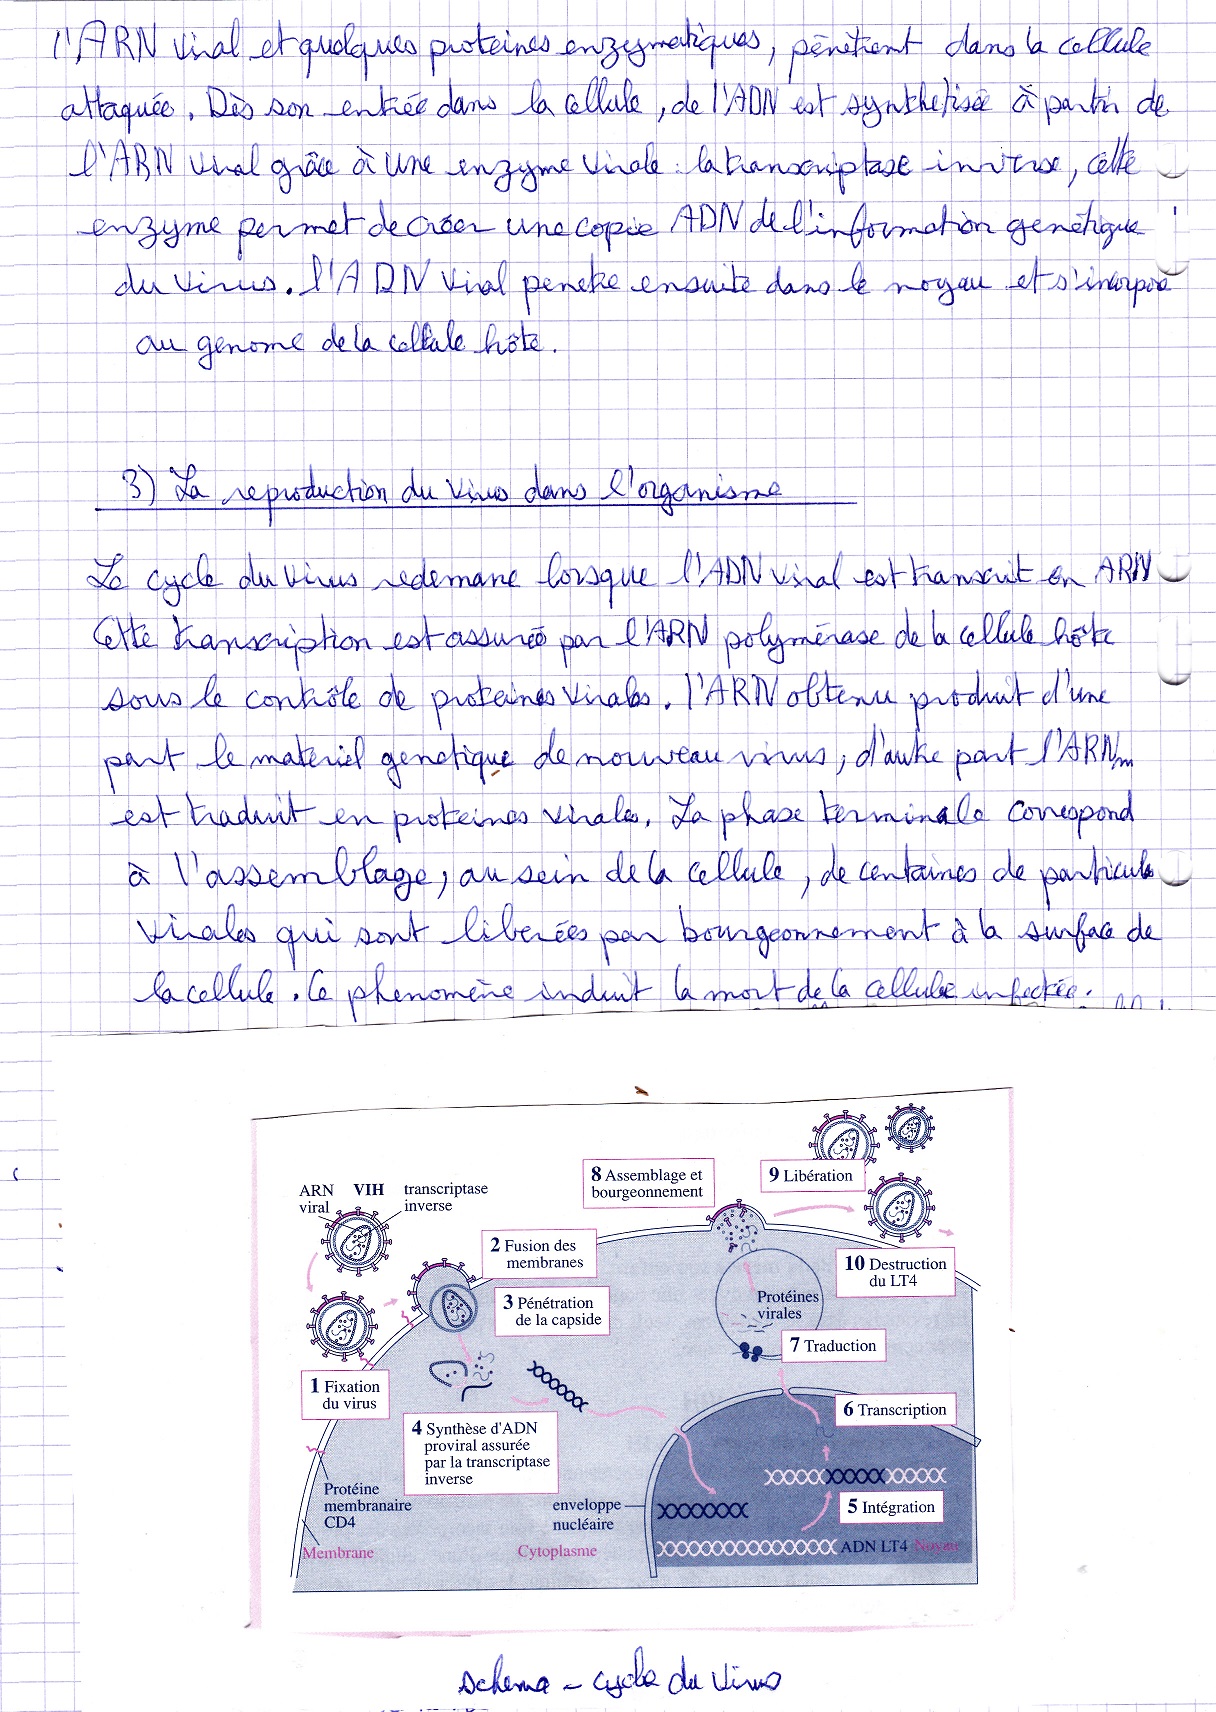 l'ARN viral et quelques proteines enzymatiques, pénètrent dans la cellule
attaquée. Dès son entrée dans la cellule, de l'ADN est synthetisée à partir de
l'ARN viral grâce à une enzyme virale : la transcriptase inverse, cette
enzyme permet de créer une copie ADN de l'information genétique
du virus. l'ADN viral penetre ensuite dans le noyau et s'incorpore
au genome de la cellule hôte.
3) La reproduction du virus dans l'organisme
Le cycle du virus redemare lorsque l'ADN viral est transcrit en ARN
Cette transcription est assurée par l'ARN polymérase de la cellule hôte
sous le contrôle de proteines virales. l'ARN obtenu produit d'une
part le materiel genetique de nouveau virus, d'autre part l'ARNm
est traduit en proteines virales. La phase terminale correspond
à l'assemblage, au sein de la cellule, de centaines de particules
virales qui sont liberées par bourgeonnement à la surface de
la cellule. Ce phenomène induit la mort de la cellule infectée.
ARN viral
VIH
transcriptase inverse
1 Fixation
du virus
2 Fusion des
membranes
3 Pénétration
de la capside
4 Synthèse d'ADN
proviral assurée
par la transcriptase
inverse
Protéine
membranaire
CD4
Membrane
Cytoplasme
enveloppe
nucléaire
8 Assemblage et
bourgeonnement
9 Libération
10 Destruction
du LT4
Protéines
virales
7 Traduction
6 Transcription
5 Intégration
ADN LT4 Noyau
schema - cycle du virus